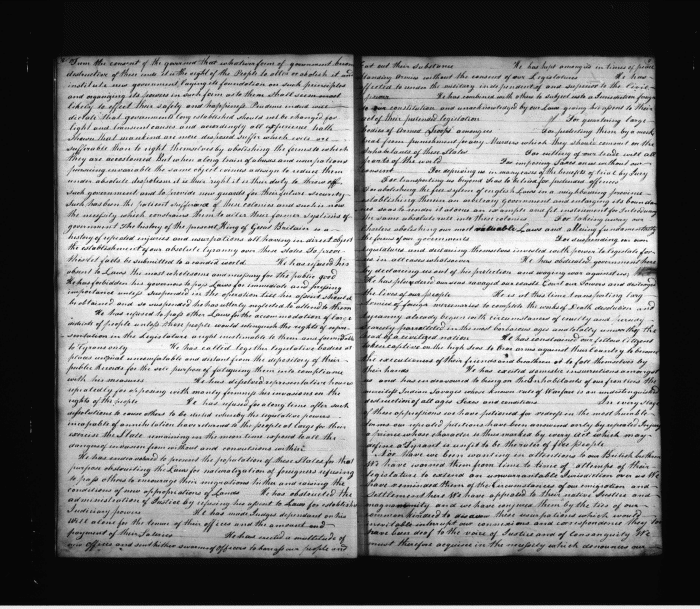 from the consent of the governed That whatever form of government becomes
destructive of these ends it is the right of the People to alter or abolish it and
institute new government laying its foundation on such principles
and organizing its powers in such form as to them shall seem most
likely to effect their safety and happiness. Prudence indeed will
dictate that governments long established should not be changed for
light and transient causes and accordingly all experience hath
shown that mankind are more disposed suffer which evils are
sufferable than to right themselves by abolishing the forms to which
they are accustomed But when a long train of abuses and usurpations
pursuing invariable the same object evinces a design to reduce them
under absolute despotism it is their right it is their duty to throw off
such government and to provide new guards for their future security
Such has been the patient sufferance of these colonies and such is now
the necessity which constrains them to alter their former systems of
government The history of the present King of Great Britain is a
history of repeated injuries and usurpations all having in direct object
the establishment of an absolute tyranny over these States To prove
this let facts be submitted to a candid world He has refused his
assent to Laws the most wholesome and necessary for the public good
He has forbidden his governors to pass Laws for immediate and pressing
importance unless suspended in the operation till his assent should
be obtained and so suspended he has utterly neglected to attend to them
He has refused to pass other Laws for the accommodation of large
districts of people unless those people would relinquish the rights of repre
sentation in the Legislature a right inestimable to them and formidable
to Tyrants only He has called together legislative bodies at
places unusual uncomfortable and distant from the depository of their
public Records for the sole purpose of fatiguing them into compliance
with his measures He has dissolved representative houses
repeatedly for opposing with manly firmness his invasions on the
rights of the people He has refused for a long time after such
dissolutions to cause others to be elected whereby the legislative powers
incapable of annihilation have returned to the people at large for their
exercise the State remaining in the mean time exposed to all the
dangers of invasion from without and convulsions within
He has endeavoured to prevent the population of these States for that
purpose obstructing the Laws for naturalization of foreigners refusing
to pass others to encourage their migrations hither and raising the
conditions of new appropriations of Lands He has obstructed the
administration of Justice by refusing his assent to Laws for establishing
Judiciary powers He has made Judges dependant on his
Will alone for the tenure of their offices and the amount and
payment of their Salaries He has erected a multitude of
new offices and sent hither swarms of Officers to harrass our people and
eat out their substance He has kept amongst us in times of peace
standing armies without the consent of our Legislatures He has
affected to render the military independent of and superior to the Civil
power He has combined with others to subject us to a Jurisdiction foreign
to our constitution and unacknowledged by our Laws giving his assent to their
acts of their pretended legislation For quartering large
bodies of Armed troops amongst us For protecting them by a mock
trial from punishment for any Murders which they should commit on the
Inhabitants of these States For cutting off our trade with all
parts of the world For imposing Taxes on us without our
consent For depriving us in many cases of the benefits of trial by Jury
For transporting us beyond seas to be tried for pretended offences
For abolishing the free system of english Laws in a neighbouring province
establishing therein an arbitrary government and enlarging its bounda
ries so as to render it at once an example and fit instrument for introducing
the same absolute rule into these colonies For taking away our
Charters abolishing our most valuable Laws and altering fundamentally
the forms of our governments For suspending our own
Legislatures and declaring themselves invested with power to legislate for
us in all cases whatsoever He has abdicated government here
by declaring us out of his protection and waging war against us
He has plundered our seas ravaged our coasts burnt our Towns and destroyed
the lives of our people He is at this time transporting large
armies of foreign mercenaries to compleat the works of Death desolation and
tyranny already begun with circumstances of cruelty and perfidy
scarcely paralleled in the most barbarous ages and totally unworthy the
head of a civilized nation He has constrained our fellow citizens
taken captive on the high seas to bear arms against their Country to become
the executioners of their friends and brethren or to fall themselves by
their hands He has excited domestic insurrections amongst
us and has endeavoured to bring on the Inhabitants of our frontiers the
merciless Indian Savages whose known rule of Warfare is an undistinguished
destruction of all ages Sexes and conditions In every stage
of these oppressions we have petitioned for redress in the most humble
terms our repeated petitions have been answered only by repeated injury
a Prince whose character is thus marked by every act which may
define a Tyrant is unfit to be the ruler of a free People
Nor have we been wanting in attentions to our British brethren
We have warned them from time to time of attempts of their
legislature to extend an unwarrantable Jurisdiction over us We
have reminded them of the Circumstances of our emigration and
Settlement here We have appealed to their native Justice and
magnanimity and we have conjured them by the ties of our
common kindred to disavow these usurpations which would
inevitably interrupt our connexions and correspondence they too
have been deaf to the voice of Justice and of Consanguinity We
must therefore acquiesce in the necessity which denounces our